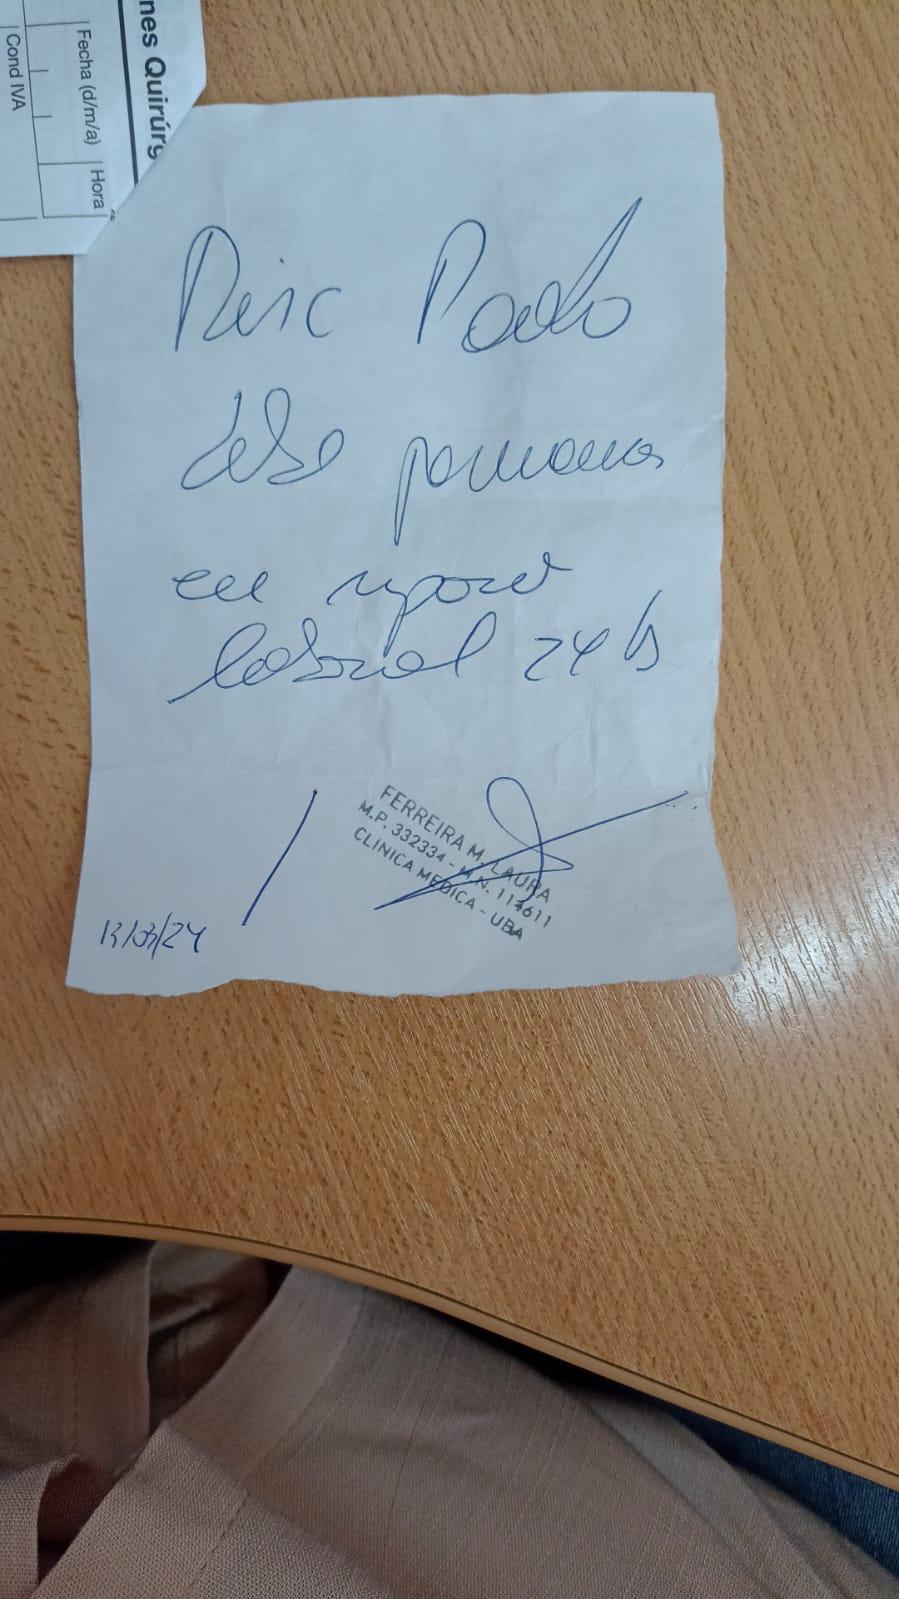 nes Quirúrg
Fecha (d/m/a) Hora
Cond IVA
Paolo
debe permanecer
en reposo
laboral 24 hs
13/03/24
FERREIRA M. LAURA
M.P. 332334 - M.N. 114611
CLINICA MEDICA - UBA